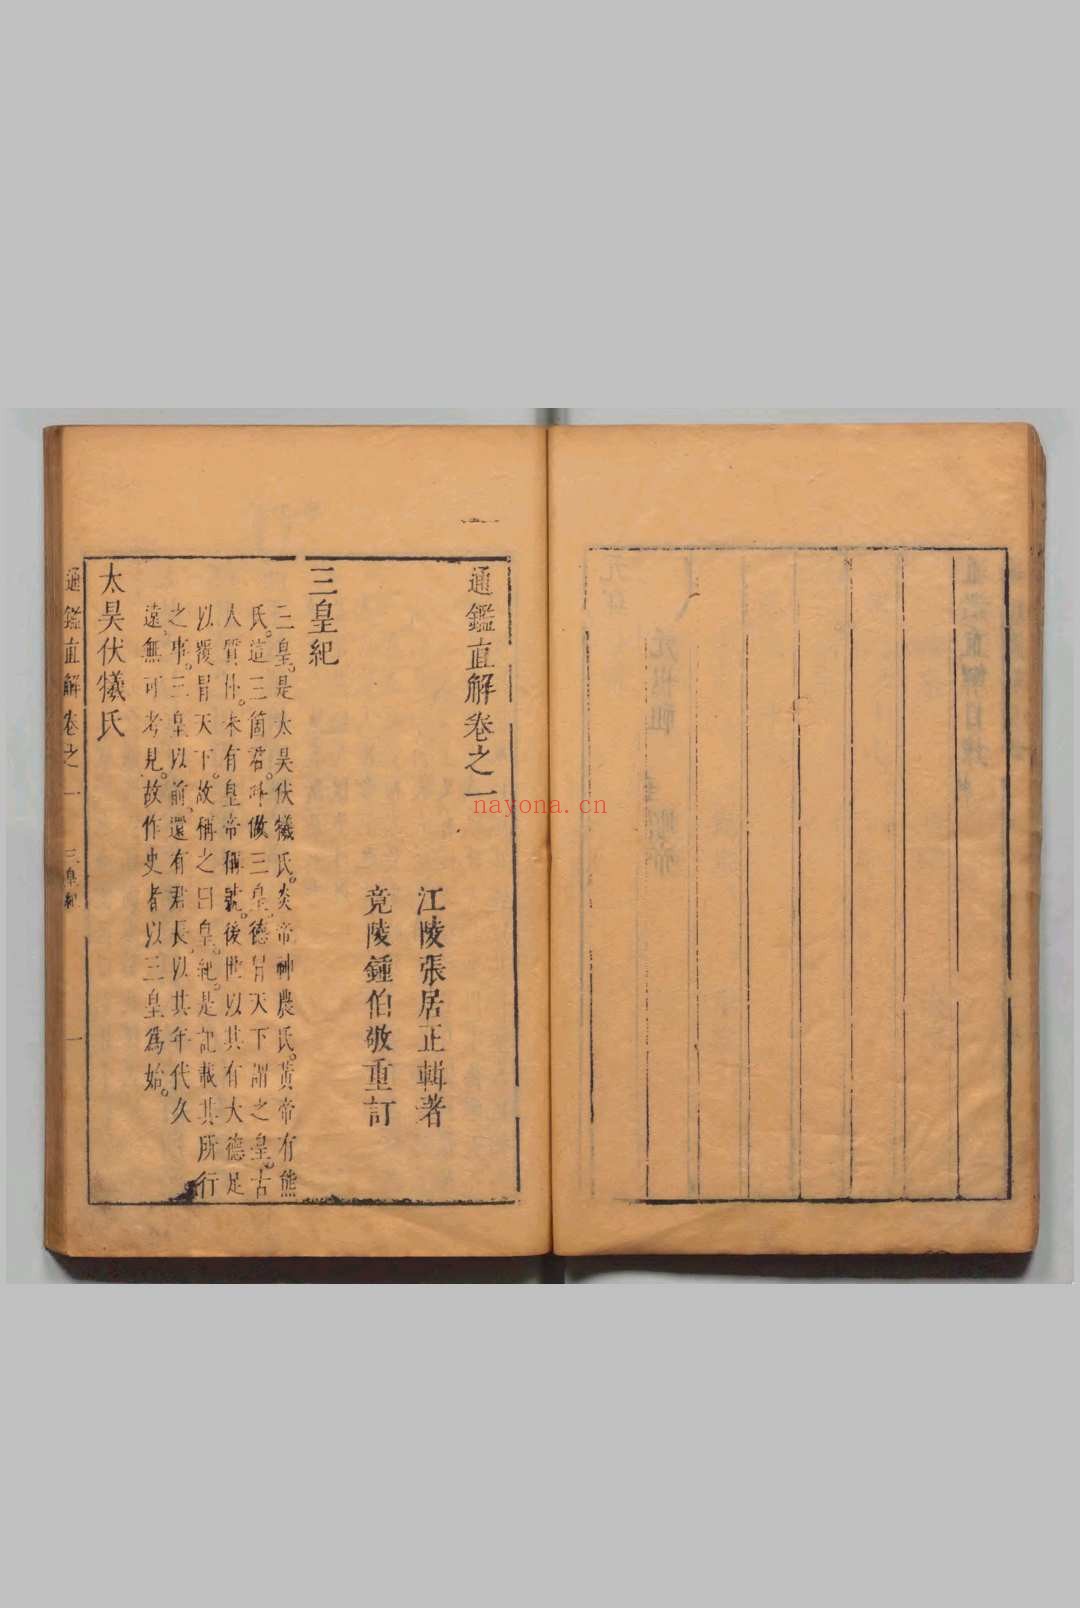 通鑑直解卷之一
江陵張居正輯著
竟陵鍾伯敬重訂
三皇紀
三皇。是太昊伏犧氏。炎帝神農氏。黃帝有熊
氏。這三箇君。叫做三皇。德冒天下謂之皇。古
人質朴。未有皇帝稱號。後世以其有大德足
以覆冒天下。故稱之曰皇。紀。是記載其所行
之事。三皇以前、還有君長、以其年代久
遠、無可考見。故作史者以三皇爲始。
太昊伏犧氏
通鑑直解卷之一 三皇紀 一
nayona.cn